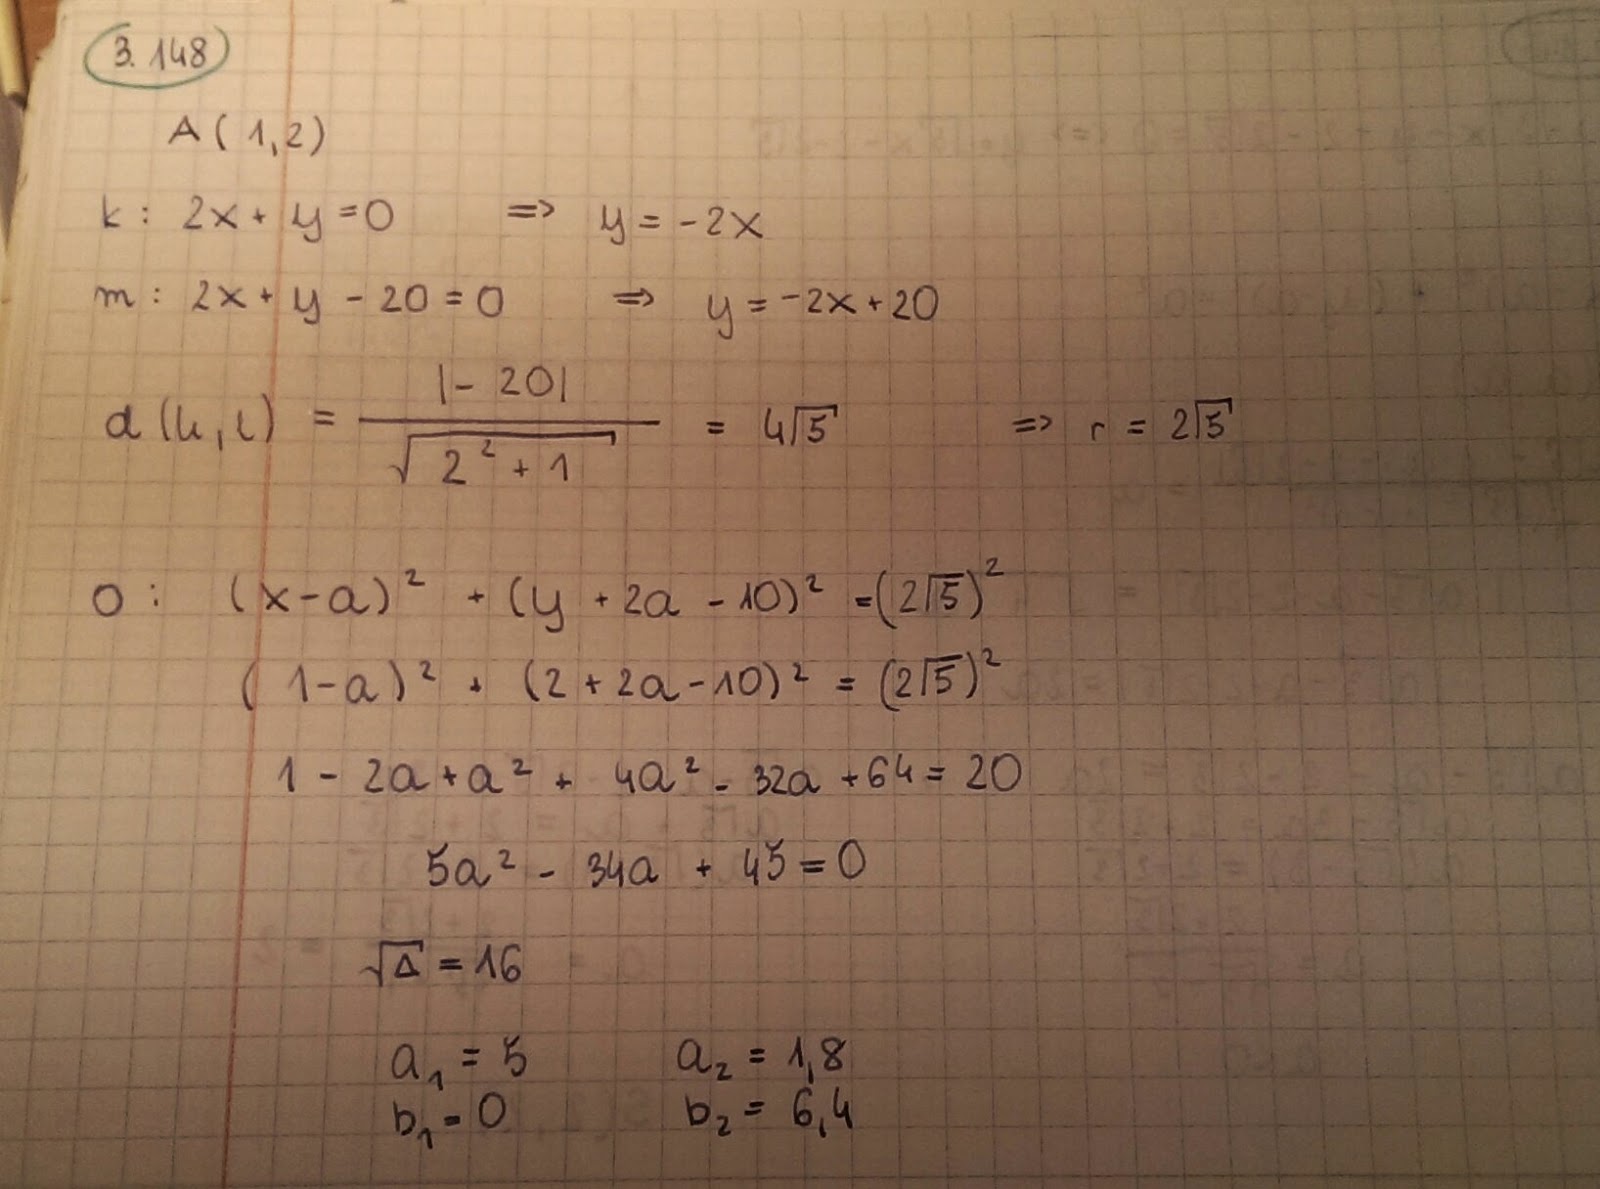 3.148
A(1,2)
k: 2x + y = 0 => y = -2x
m: 2x + y - 20 = 0 => y = -2x + 20
d(k,l) = |-20| / √(2² + 1) = 4√5 => r = 2√5
O: (x-a)² + (y + 2a - 10)² = (2√5)²
(1-a)² + (2 + 2a - 10)² = (2√5)²
1 - 2a + a² + 4a² - 32a + 64 = 20
5a² - 34a + 45 = 0
√Δ = 16
a₁ = 5 a₂ = 1,8
b₁ = 0 b₂ = 6,4